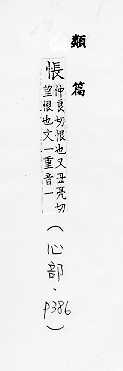 類篇
悵
仲良切恨也又丑亮切
望恨也文一重音一
(心部·p386)